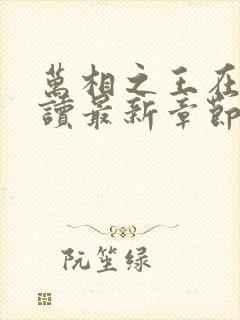 萬相之王在
讀最新章節
阮笙绿